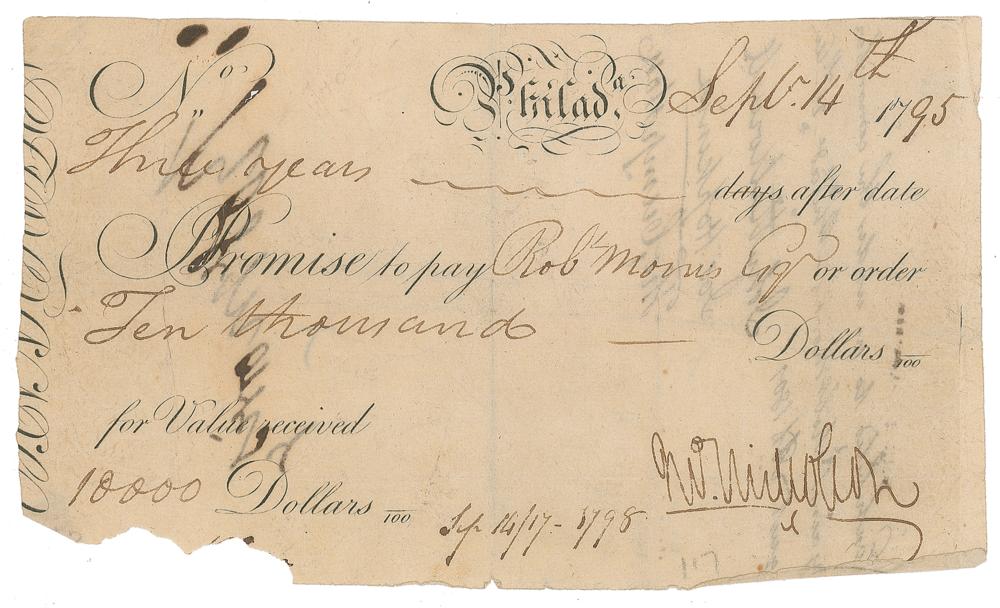 No. Philada. Septr. 14th 1795
Three years days after date
Promise to pay Robt Morris Esqr or order
Ten thousand Dollars /100
for Value received
10000 Dollars /100
Sep 14/17 - 1798
Jno. Nicholson
117